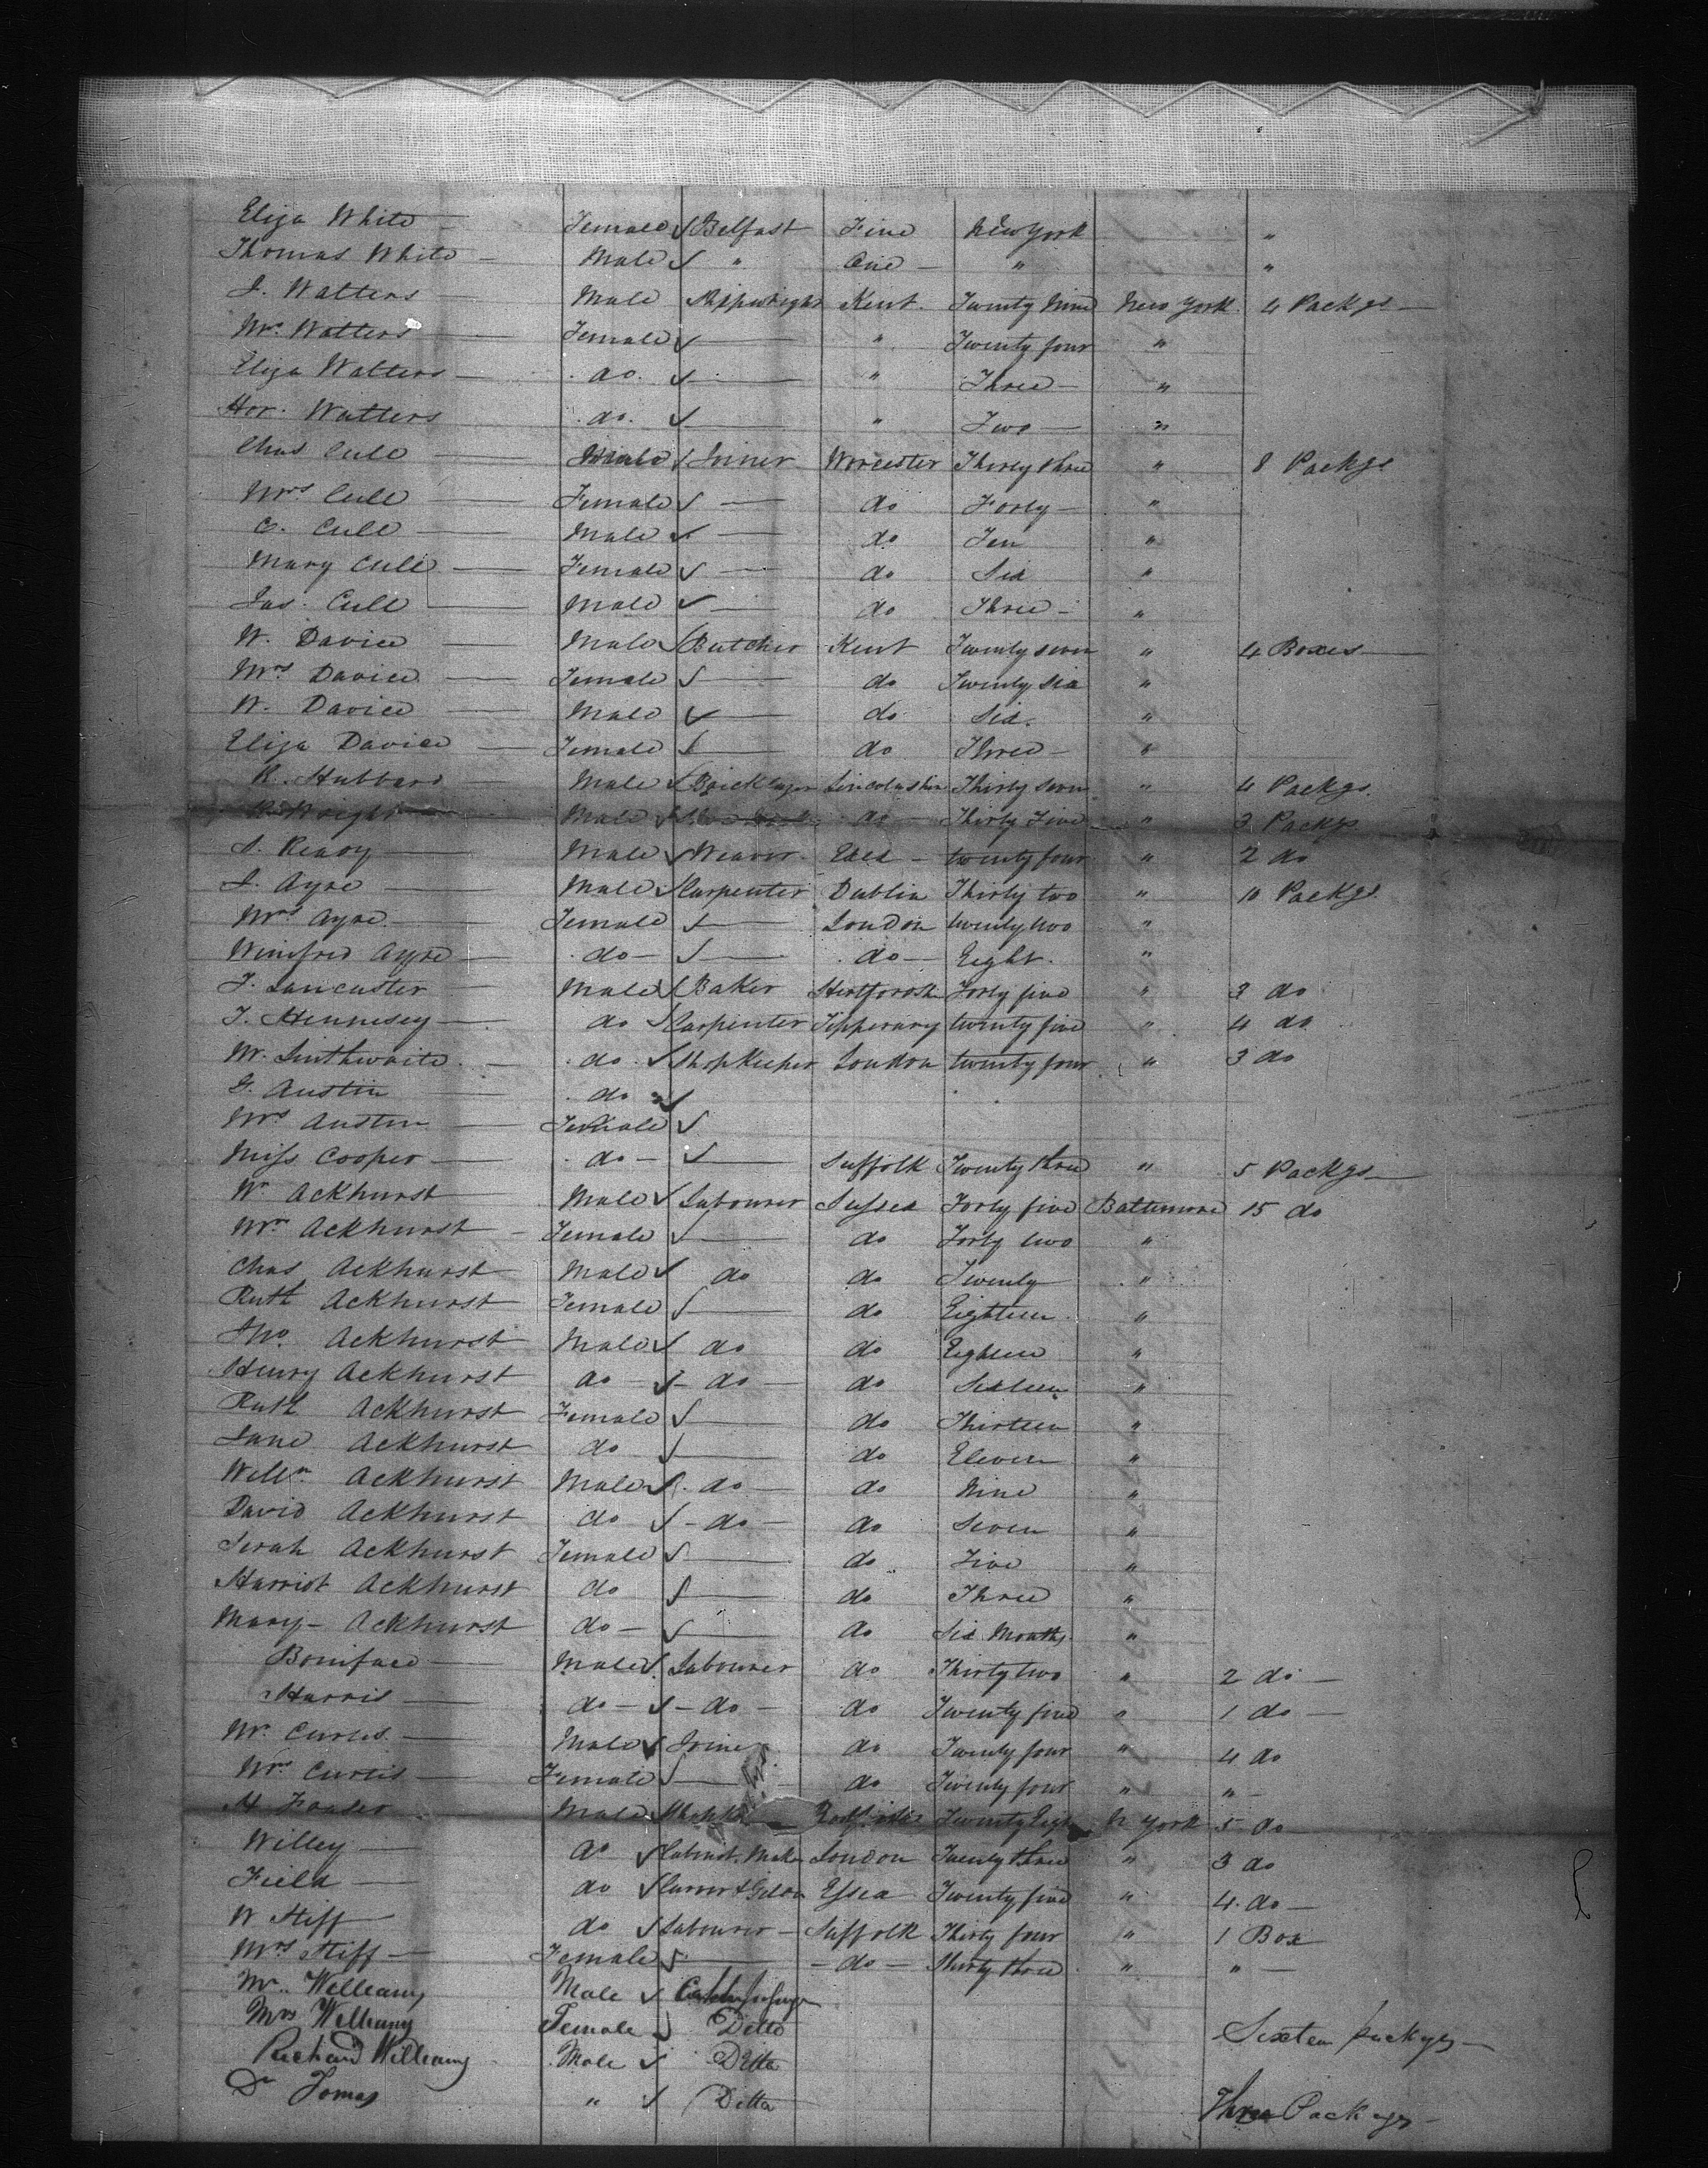 Eliza White Female Belfast Five New York "
Thomas White Male " One " "
J. Watters Male Shipwright Kent Twenty Nine New York 4 Packgs
Mrs. Watters Female " Twenty four "
Eliza Watters do. " Three "
Hor. Watters do. " Two "
Chas Cull Male Joiner Worcester Thirty three " 8 Packgs
Mrs Cull Female do Forty "
C. Cull Male do Ten "
Mary Cull Female do Six "
Jas. Cull Male do Three "
W. Davice Male Butcher Kent Twenty seven " 4 Boxes
Mrs Davice Female do Twenty six "
W. Davice Male do Six "
Eliza Davice Female do Three "
R. Hubbard Male Bricklayer Lincolnshire Thirty seven " 4 Packgs.
R. Wright Male do Thirty Five " 3 Packgs
J. Ready Male Weaver twenty four " 2 do
J. Ayre Male Carpenter Dublin Thirty two " 10 Packgs.
Mrs Ayre Female London twenty two "
Winifred Ayre do do Eight "
J. Lancaster Male Baker Hertfordsh Forty five " 3 do
T. Hennesey do Carpenter Tipperary twenty five " 4 do
W. Linthwaite do ShopKeeper London twenty four " 3 do
G. Austin do
Mrs Austin Female
Miss Cooper do Suffolk Twenty three " 5 Packgs
W. Ackhurst Male Labourer Sussex Forty five Baltimore 15 do
Mrs Ackhurst Female do Forty two "
Chas Ackhurst Male do do Twenty "
Ruth Ackhurst Female do Eighteen "
Tho. Ackhurst Male do do Eighteen "
Henry Ackhurst do do do Sixteen "
Ruth Ackhurst Female do Thirteen "
Jane Ackhurst do do Eleven "
Willm Ackhurst Male do do Nine "
David Ackhurst do do do Seven "
Serah Ackhurst Female do Five "
Harriot Ackhurst do do Three "
Mary Ackhurst do do Six Months "
Boniface Male Labourer do Thirty two " 2 do
Harris do do do Twenty five " 1 do
W. Curtis Male Joiner do Twenty four " 4 do
Mrs Curtis Female do Twenty four " "
H Fraser Male Twenty Eight N York 5 do
Willey do Cabinet Maker London Twenty three " 3 do
Field do Carver & Gilder Essex Twenty five " 4 do
W Stiff do Labourer Suffolk Thirty four " 1 Box
Mrs Stiff Female do Thirty three " "
Mr. Welleamy Male
Mrs Welleamy Female Ditto Sixteen packgs
Richard Welleamy Male Ditto
Dr Tomas " Ditto Three Packages